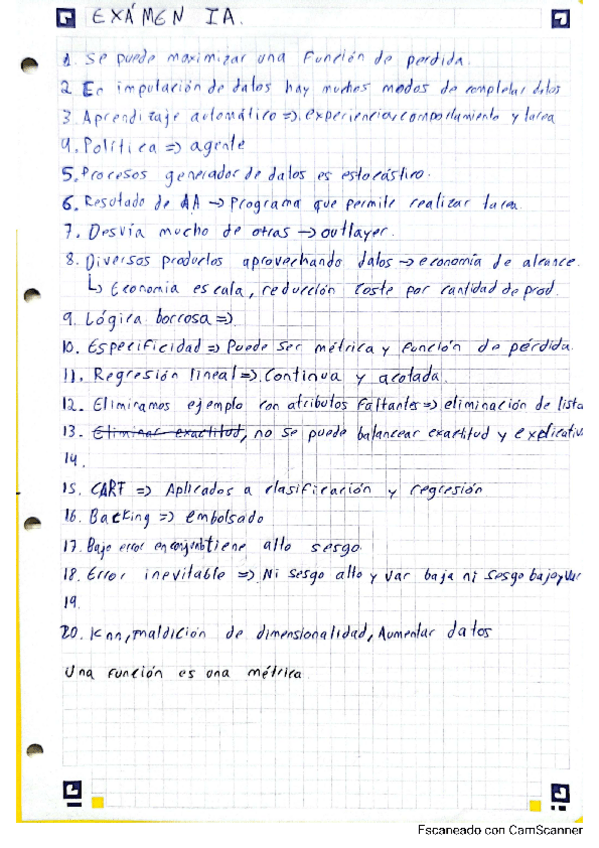 EXÁMEN IA.
1. Se puede maximizar una función de perdida.
2 En imputación de datos hay muchos modos de completar datos
3. Aprendizaje automático => experiencia, comportamiento y tarea
4. Política => agente
5. Procesos generador de datos es estocástico.
6. Resultado de AA → Programa que permite realizar tarea
7. Desvía mucho de otras → outlayer.
8. Diversos productos aprovechando datos → economía de alcance.
↳ Economía escala, reducción coste por cantidad de prod.
9. Lógica borrosa =>
10. Especificidad => Puede ser métrica y función de pérdida.
11. Regresión lineal => Continua y acotada.
12. Eliminamos ejemplo con atributos faltantes => eliminación de lista
13. Eliminar exactitud, no se puede balancear exactitud y explicativ
14.
15. CART => Aplicados a clasificación y regresión
16. Backing => embolsado
17. Bajo error en tiene alto sesgo
18. Error inevitable => Ni sesgo alto y var baja ni sesgo bajo y var
19.
20. Knn, maldición de dimensionalidad, Aumentar datos
Una función es una métrica
Escaneado con CamScanner